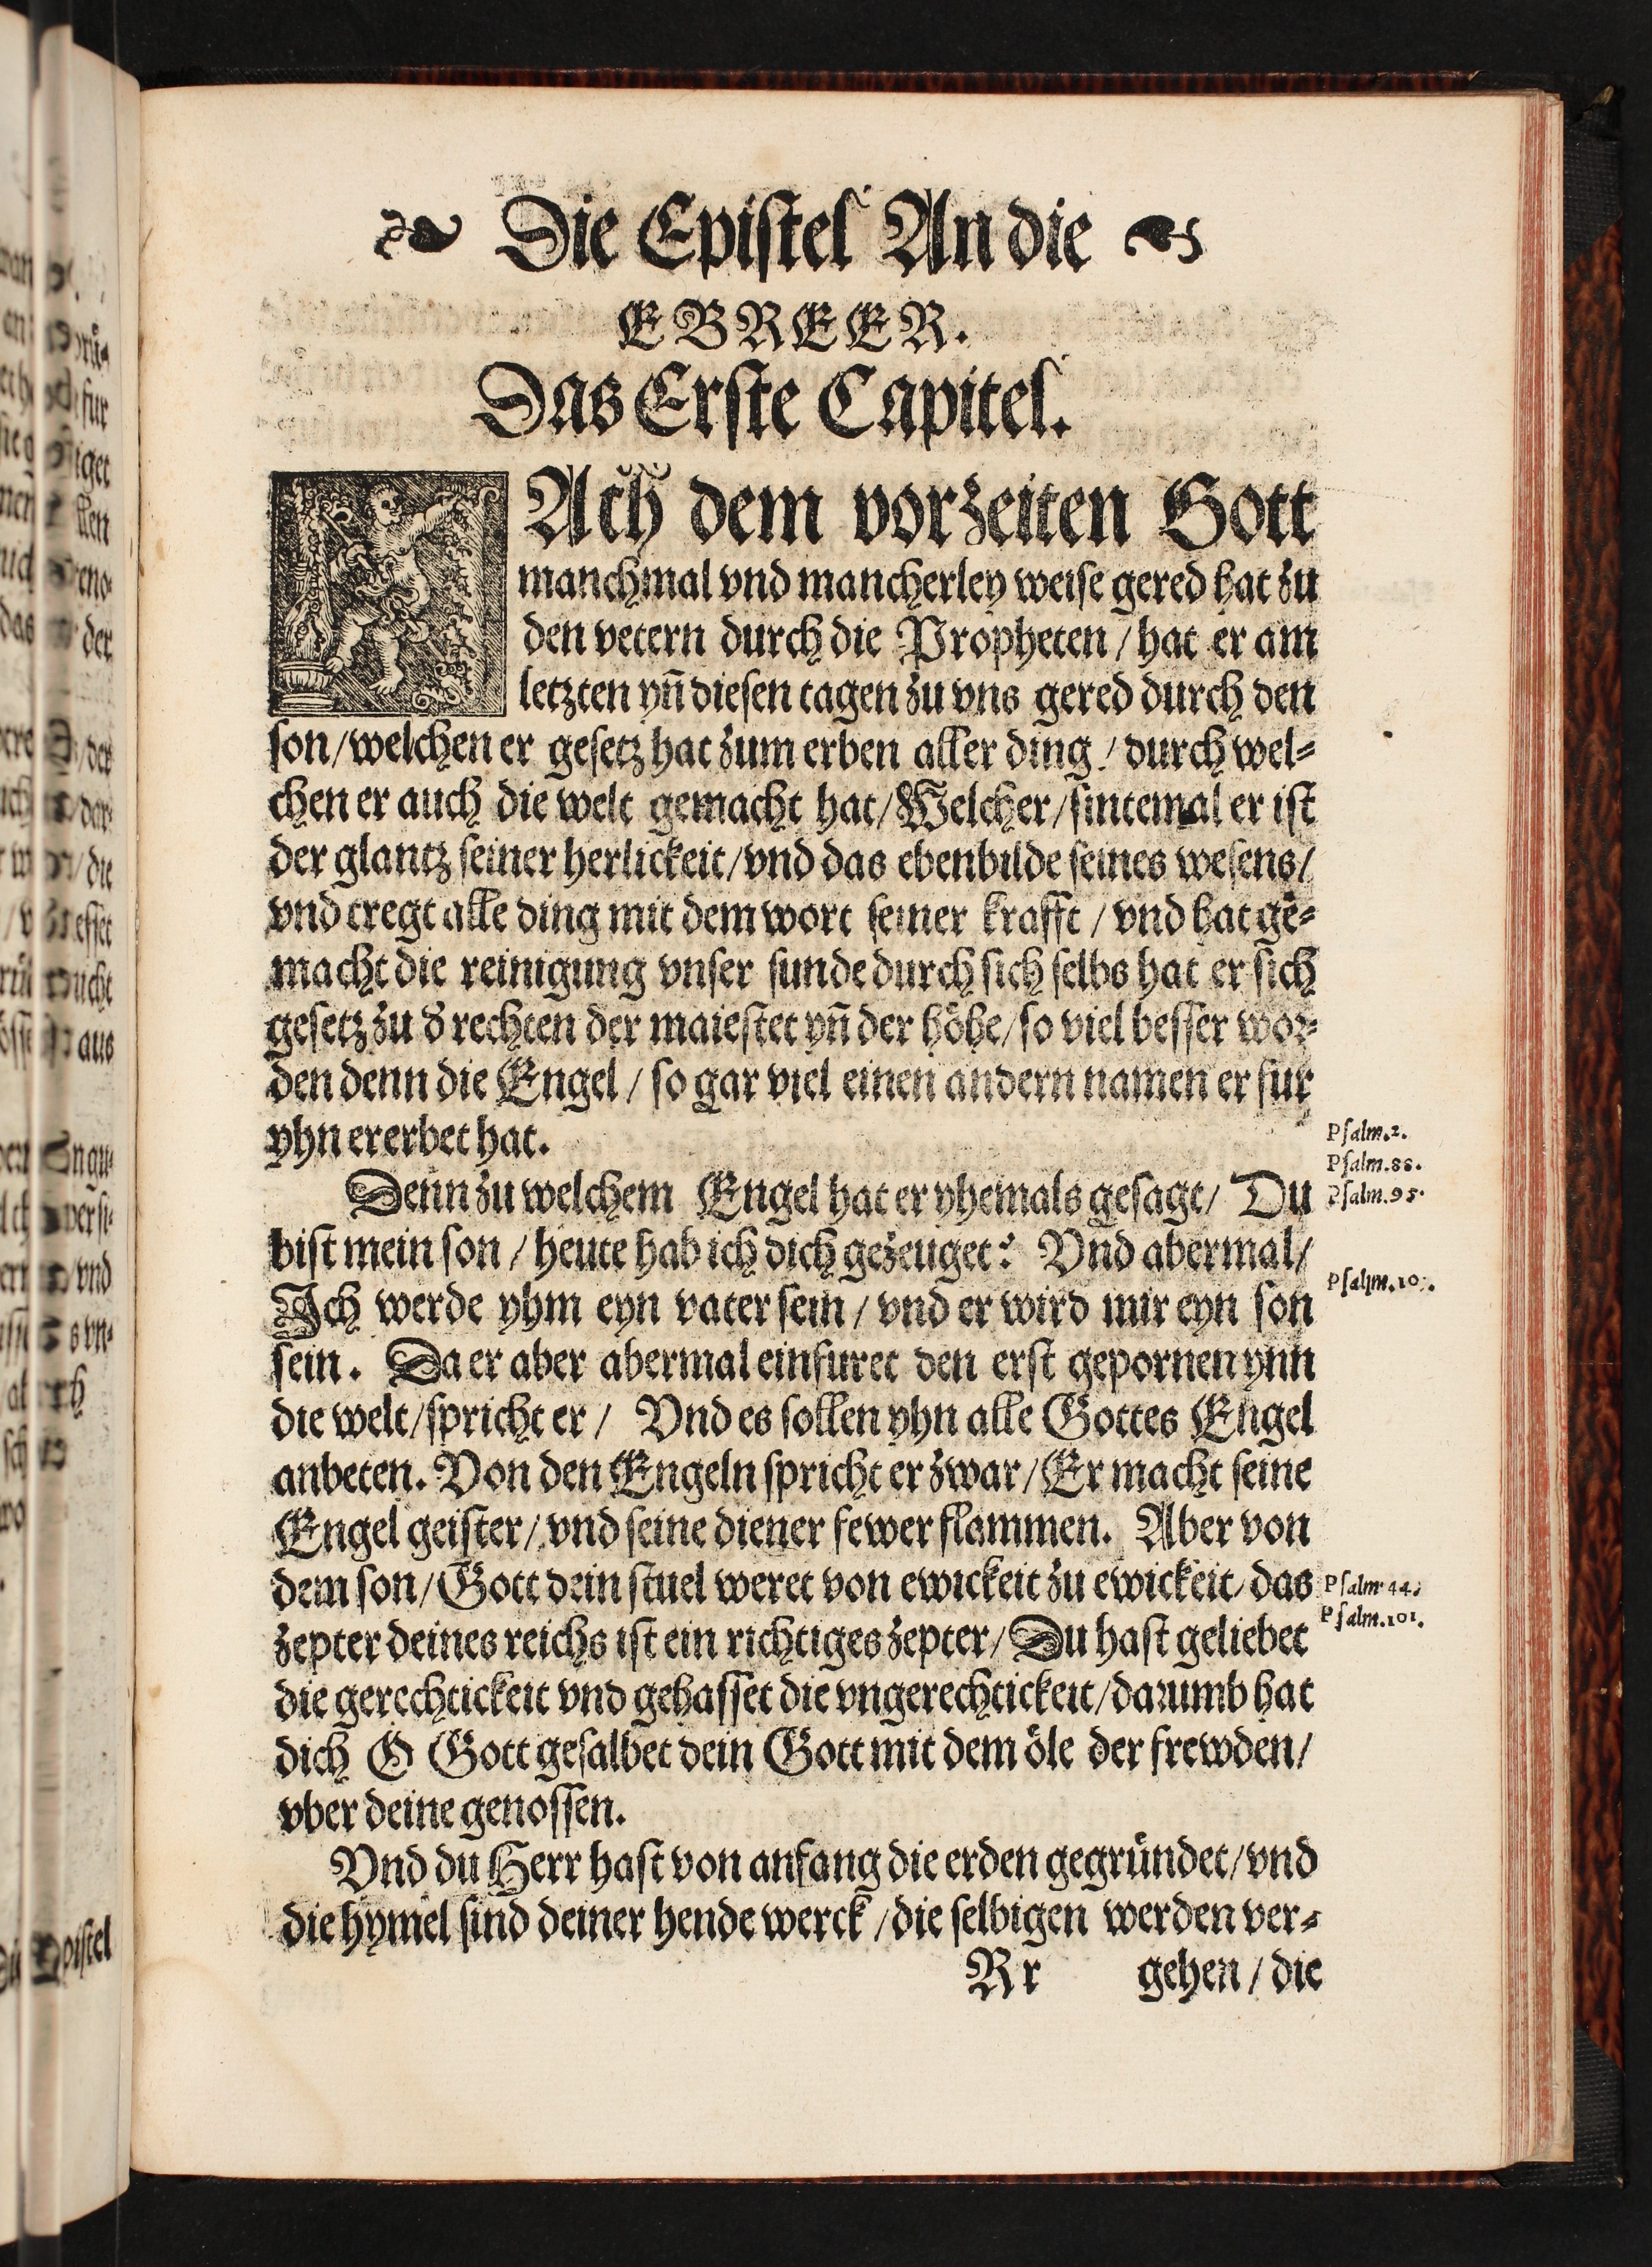 Die Epistel An die
EBREER.
Das Erste Capitel.
NAch dem vorzeiten Gott
manchmal vnd mancherley weise gered hat zu
den vetern durch die Propheten / hat er am
letzten yñ diesen tagen zu vns gered durch den
son / welchen er gesetz hat zum erben aller ding / durch wel⸗
chen er auch die welt gemacht hat / Welcher / sintemal er ist
der glantz seiner herlickeit / vnd das ebenbilde seines wesens /
vnd tregt alle ding mit dem wort seiner krafft / vnd hat ge⸗
macht die reinigung vnser sunde durch sich selbs hat er sich
gesetz zu d̕ rechten der maiestet yñ der höhe / so viel besser wor⸗
den denn die Engel / so gar viel einen andern namen er fur
yhn ererbet hat.
Denn zu welchem Engel hat er yhemals gesagt / Du
bist mein son / heute hab ich dich gezeuget? Vnd abermal /
Ich werde yhm eyn vater sein / vnd er wird mir eyn son
sein. Da er aber abermal einfuret den erst gepornen ynn
die welt / spricht er / Vnd es sollen yhn alle Gottes Engel
anbeten. Von den Engeln spricht er zwar / Er macht seine
Engel geister / vnd seine diener fewer flammen. Aber von
dem son / Gott dein stuel weret von ewickeit zu ewickeit / das
zepter deines reichs ist ein richtiges zepter / Du hast geliebet
die gerechtickeit vnd gehasset die vngerechtickeit / darumb hat
dich O Gott gesalbet dein Gott mit dem öle der frewden /
vber deine genossen.
Vnd du Herr hast von anfang die erden gegründet / vnd
die hymel sind deiner hende werck / die selbigen werden ver⸗
Rr gehen / die
Psalm.2.
Psalm.88.
Psalm.95.
Psalm.44.
Psalm.101.